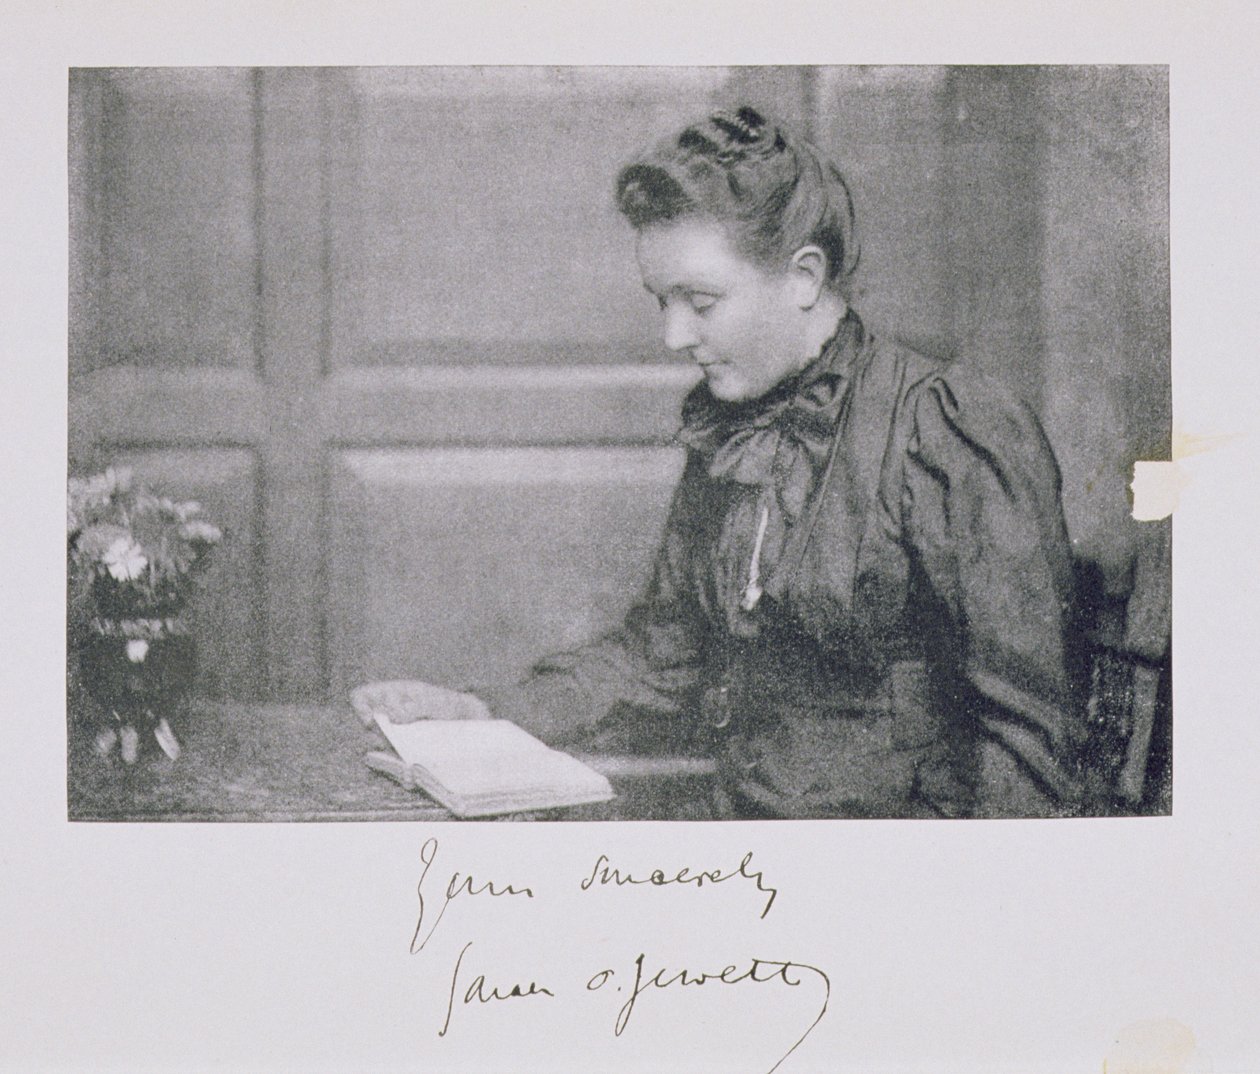 Yours sincerely
Sarah O. Jewett